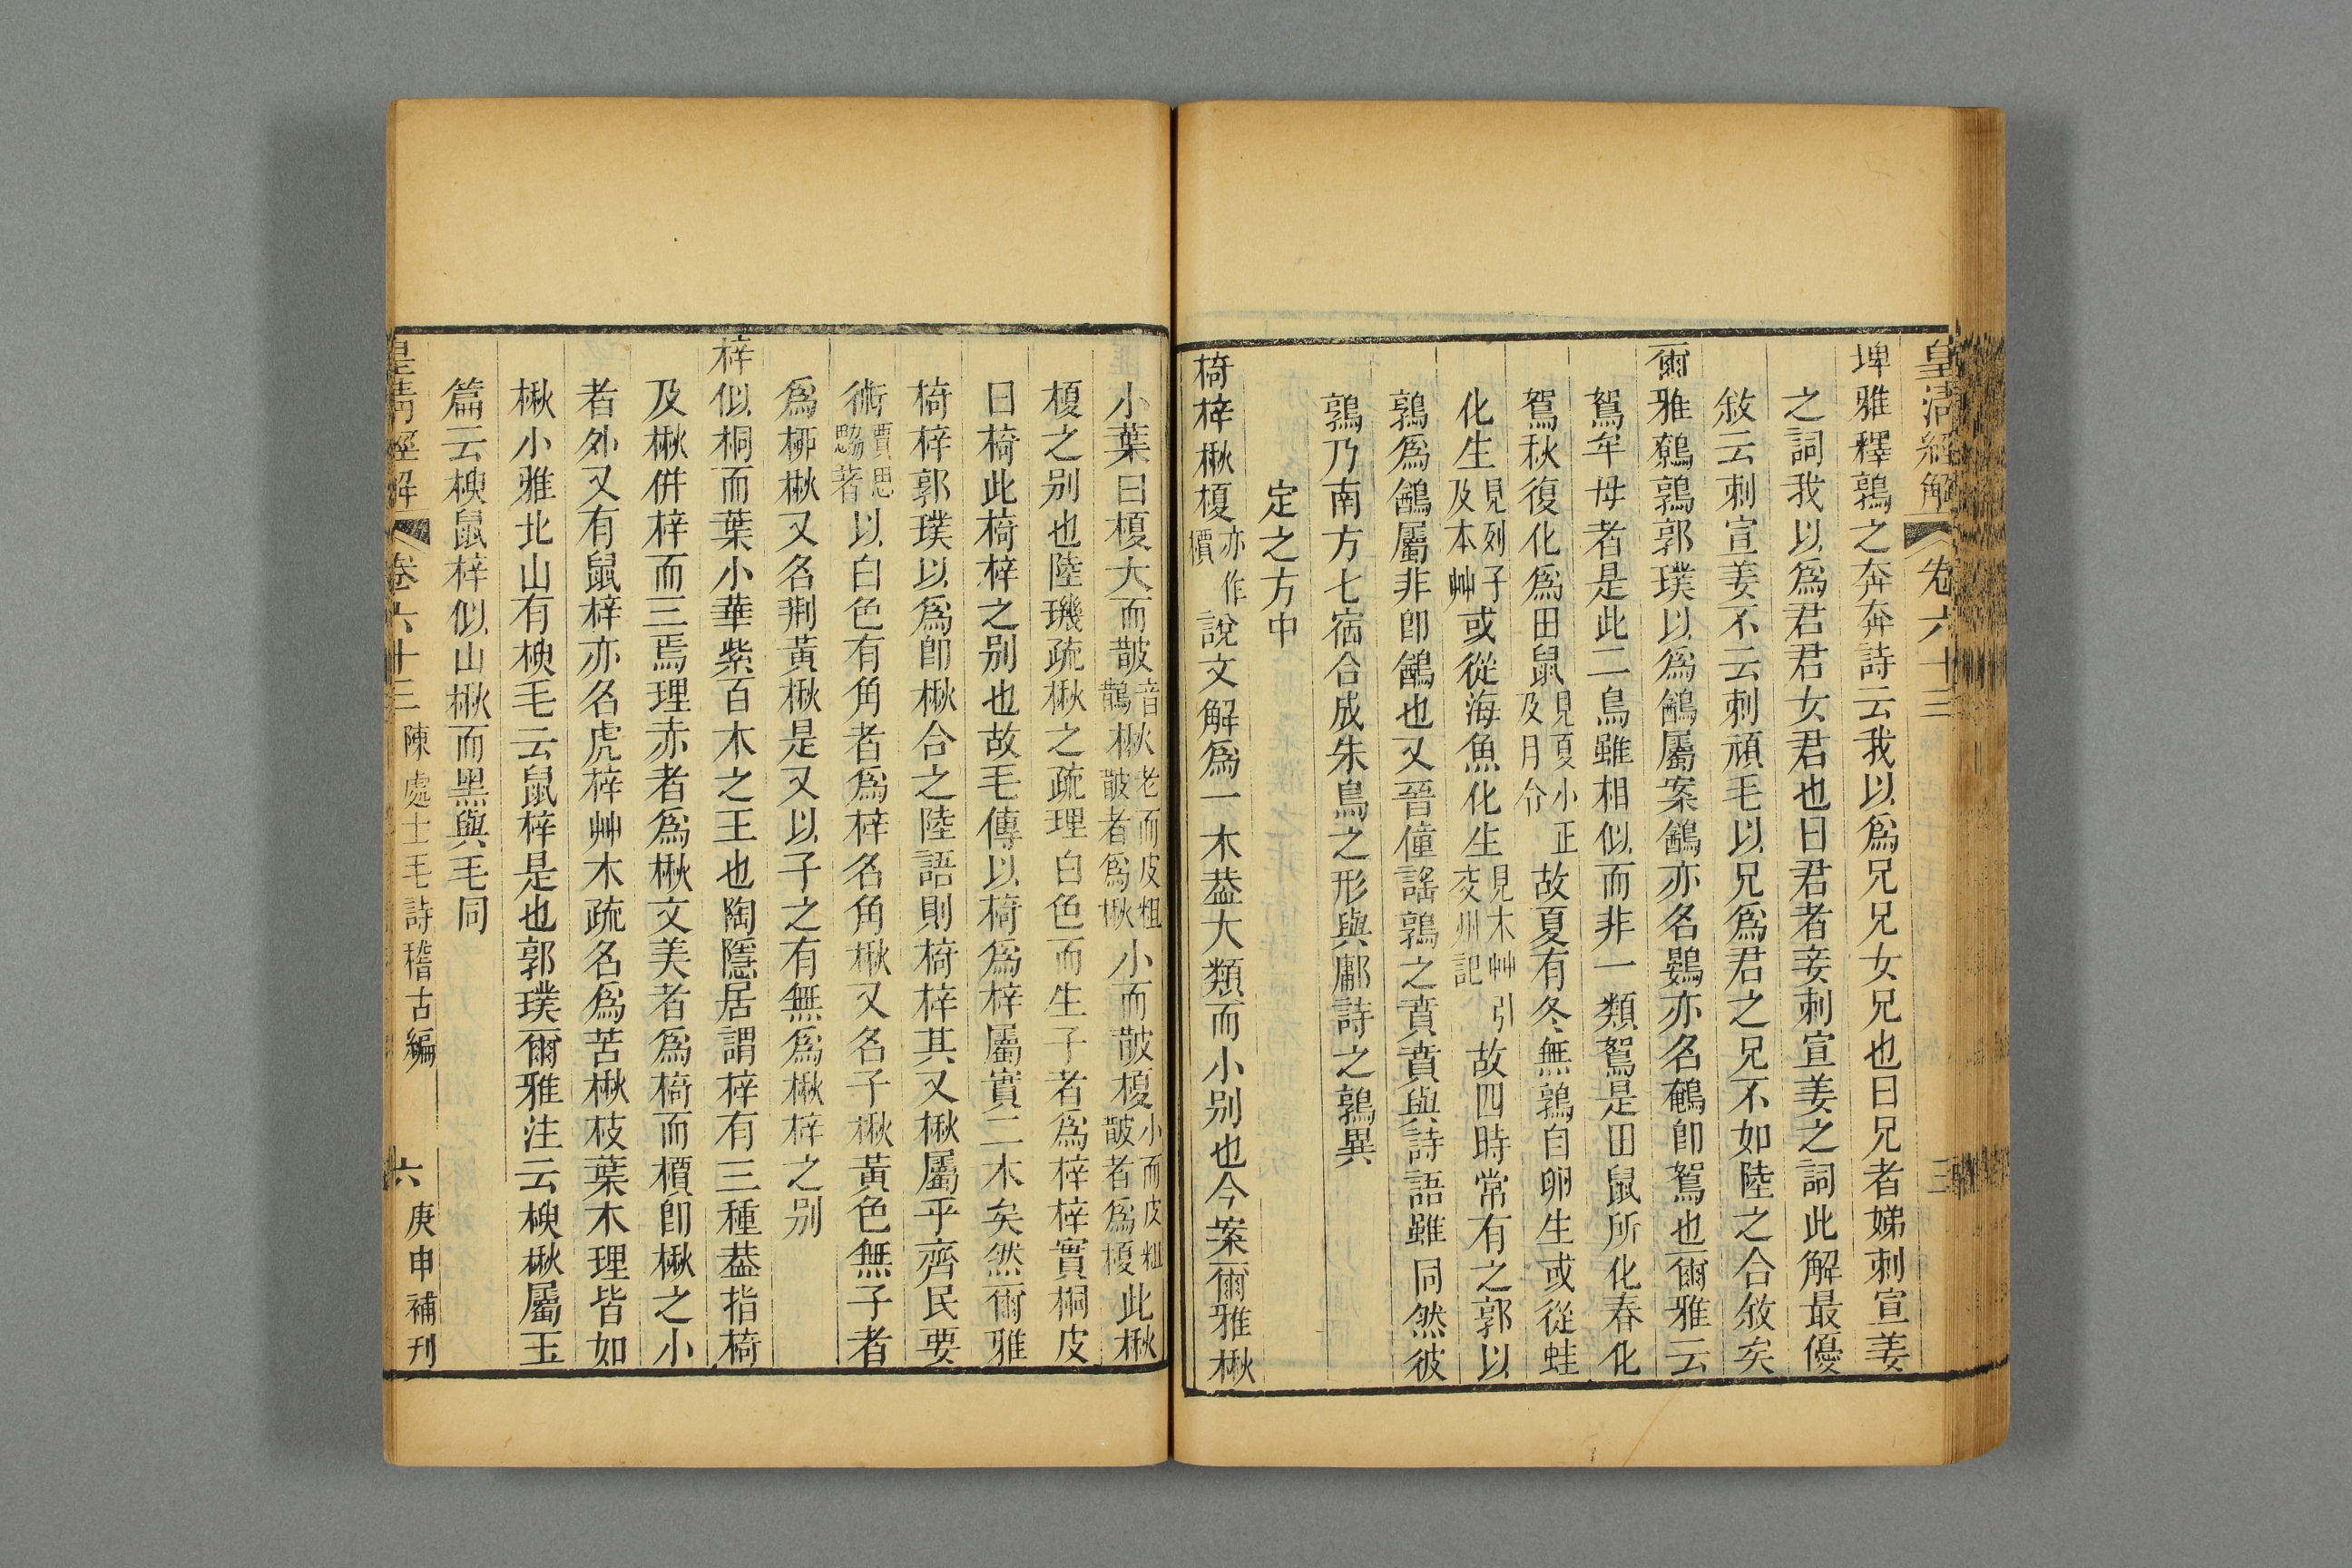 皇清經解 卷六十三 三
埤雅釋鶉之奔奔詩云我以爲兄兄女兄也曰兄者娣刺宣姜
之詞我以爲君君女君也曰君者妾刺宣姜之詞此解最優
敘云刺宣姜不云刺頑毛以兄爲君之兄不如陸之合敘矣
爾雅鷯鶉郭璞以爲鷭屬案鷭亦名鷃亦名鵪卽鴽也爾雅云
鴽牟母者是此二鳥雖相似而非一類鴽是田鼠所化春化
鴽秋復化爲田鼠見夏小正及月令故夏有冬無鶉自卵生或從蛙
化生見列子及本艸或從海魚化生見本艸引交州記故四時常有之郭以
鶉爲鷭屬非卽鷭也又晉僮謠鶉之賁賁與詩語雖同然彼
鶉乃南方七宿合成朱鳥之形與鄘詩之鶉異
定之方中
椅梓楸榎亦作檟說文解爲一木葢大類而小別也今案爾雅楸
小葉曰榎大而皵音鵲楸老而皮粗皵者爲楸小而皵榎小而皮粗皵者爲榎此楸
榎之別也陸璣疏楸之疏理白色而生子者爲梓梓實桐皮
曰椅此椅梓之別也故毛傳以椅爲梓屬實二木矣然爾雅
椅梓郭璞以爲卽楸合之陸語則椅梓其又楸屬乎齊民要
術賈思勰著以白色有角者爲梓名角楸又名子楸黃色無子者
爲柳楸又名荆黃楸是又以子之有無爲楸梓之別
梓似桐而葉小華紫百木之王也陶隱居謂梓有三種葢指椅
及楸倂梓而三焉理赤者爲楸文美者爲椅而檟卽楸之小
者外又有鼠梓亦名虎梓艸木疏名爲苦楸枝葉木理皆如
楸小雅北山有楰毛云鼠梓是也郭璞爾雅注云楰楸屬玉
篇云楰鼠梓似山楸而黑與毛同
皇清經解 卷六十三 陳處士毛詩稽古編 六 庚申補刊